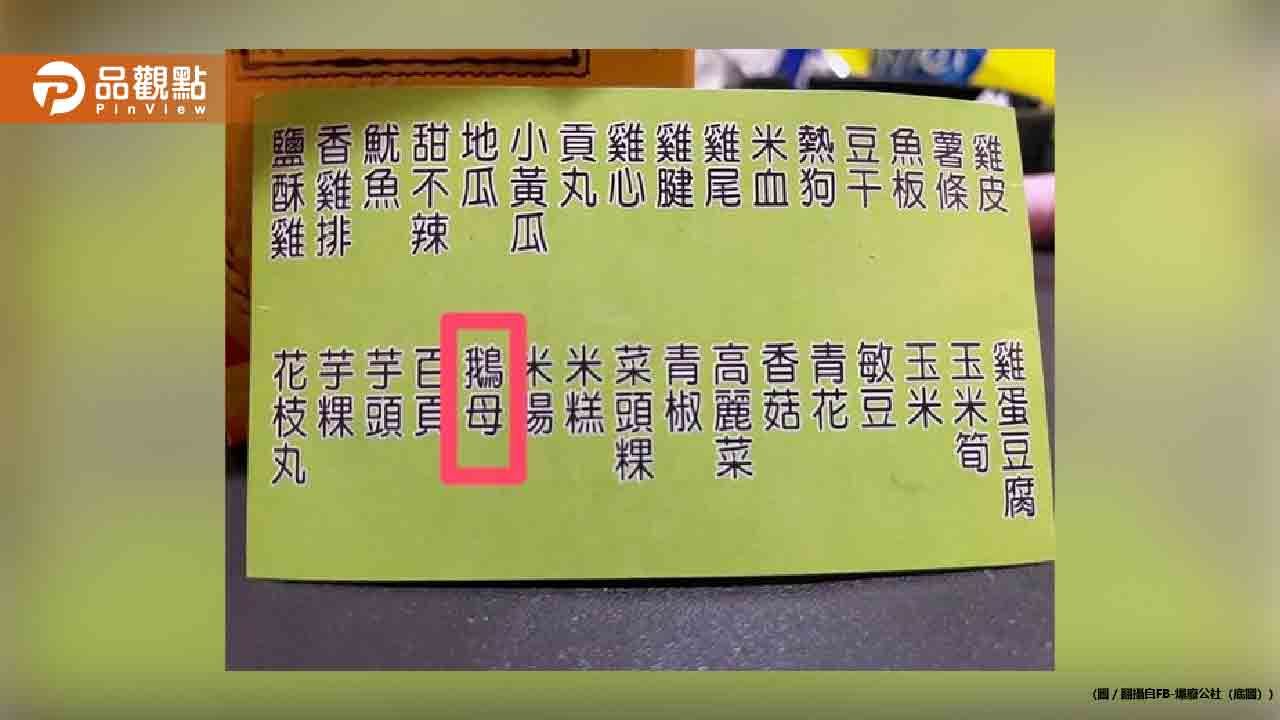 品觀點
PinView
鹽酥雞
香雞排
魷魚
甜不辣
地瓜
小黃瓜
貢丸
雞心
雞腱
雞尾
米血
熱狗
豆干
魚板
薯條
雞皮
花枝丸
芋粿
芋頭
百頁
鵝母
米腸
米糕
菜頭粿
青椒
高麗菜
香菇
青花
敏豆
玉米
玉米筍
雞蛋豆腐
(圖 / 翻攝自FB-爆廢公社（底圖）)